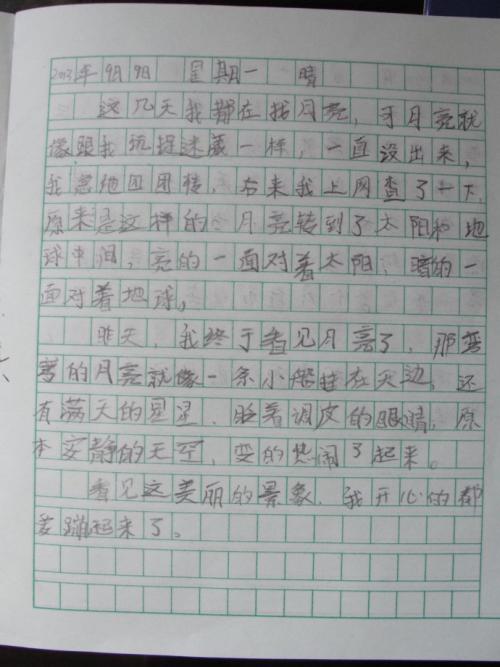 2013年9月9日 星期一 晴
这几天我都在找月亮,可月亮就
像跟我玩捉迷藏一样,一直没出来,
我急地团团转,后来我上网查了一下,
原来是这样的,月亮转到了太阳和地
球中间,亮的一面对着太阳,暗的一
面对着地球。
昨天,我终于看见月亮了,那弯
弯的月亮就像一条小船挂在天边,还
有满天的星星,眨着调皮的眼睛,原
本安静的天空,变的热闹了起来。
看见这美丽的景象,我开心的都
要蹦起来了。